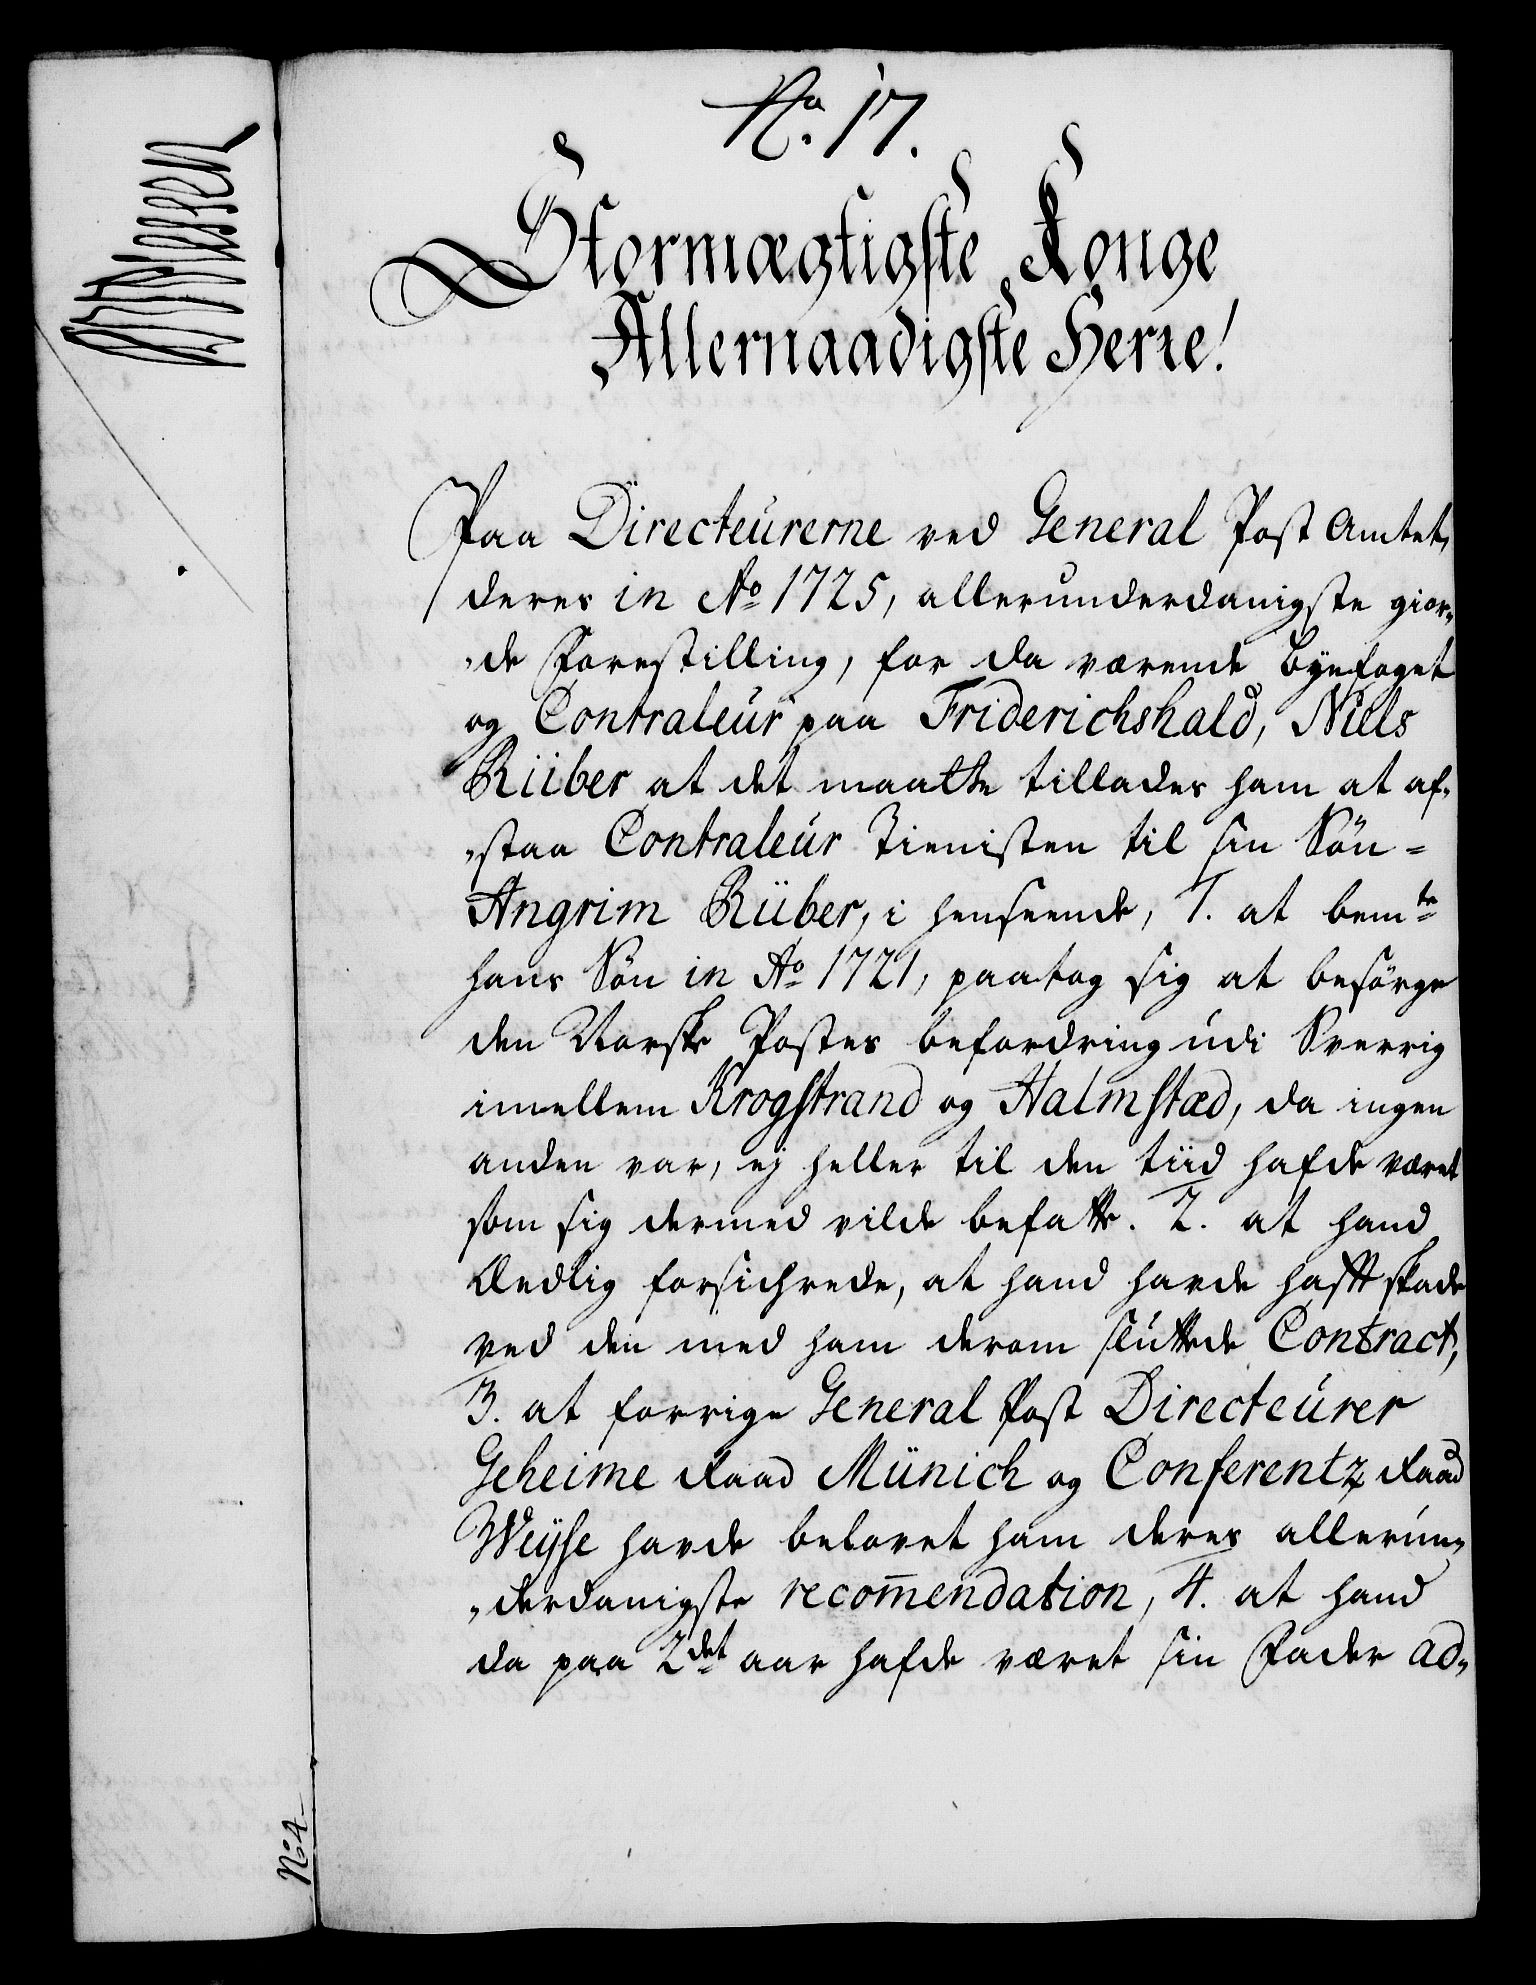 No. 17.
Stormægtigste Konge
Allernaadigste Herre!
Paa Directeurerne ved General Post Amtet,
deres in Ao 1725, allerunderdanigste gior„
„de Forestilling, for da værende Byefoget
og Contraleur paa Friderichshald, Niels
Rüber at det maatte tillades ham at af„
„staa Contraleur Tienisten til sin Sön =
Angrim Rüber, i henseende, 1. at bemte
hans Sön in Ao 1721, paatog sig at besörge
den Norske Postes befordring udi Sverrig
imellem Krogstrand og Halmstæd, da ingen
anden var, ej heller til den tiid hafde været
som sig dermed vilde befatte. 2. at hand
Eedlig forsichrede, at hand havde hafft skade
ved den med ham derom sluttede Contract,
3. at forrige General Post Directeurer
Geheime Raad Münich og Conferentz Raad
Weyse havde belovet ham deres allerun„
„derdanigste recom̄endation, 4. at hand
da paa 2det aar hafde været sin Fader ad„
No 4